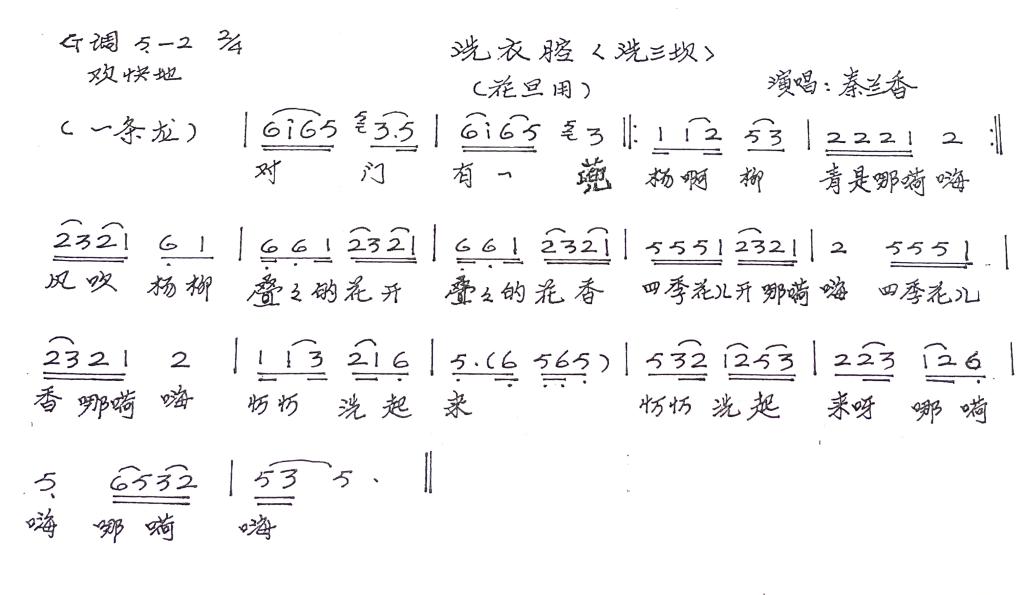 G调 5̣—2 2/4 洗衣腔〈洗三坎〉
欢快地 (花旦用) 演唱：秦兰香
(一条龙) | 6i̇65 3.5 | 6i̇65 3 ‖: 1 12 53 | 2221 2 :‖
对 门 有 一 杨啊 柳 青是哪嗬嗨
2321 6̣1 | 6̣6̣1 2321 | 6̣6̣1 2321 | 5551 2321 | 2 5551 |
风吹 杨柳 叠々的花开 叠々的花香 四季花儿开哪嗬嗨 四季花儿
2321 2 | 113 216̣ | 5̣.(6̣ 5̣6̣5̣) | 532 1253 | 223 126̣ |
香哪嗬 嗨 忻忻 洗起 来 忻忻 洗起 来呀 哪嗬
5̣ 6532 | 53 5. ‖
嗨 哪嗬 嗨